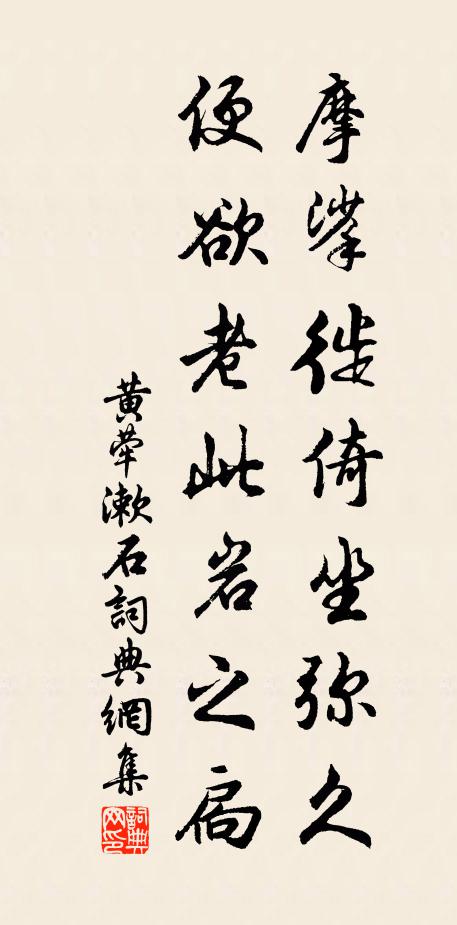 摩挲徙倚坐弥久
便欲老此岩之扃
黄荦漱石詞典網集
詞典
网印